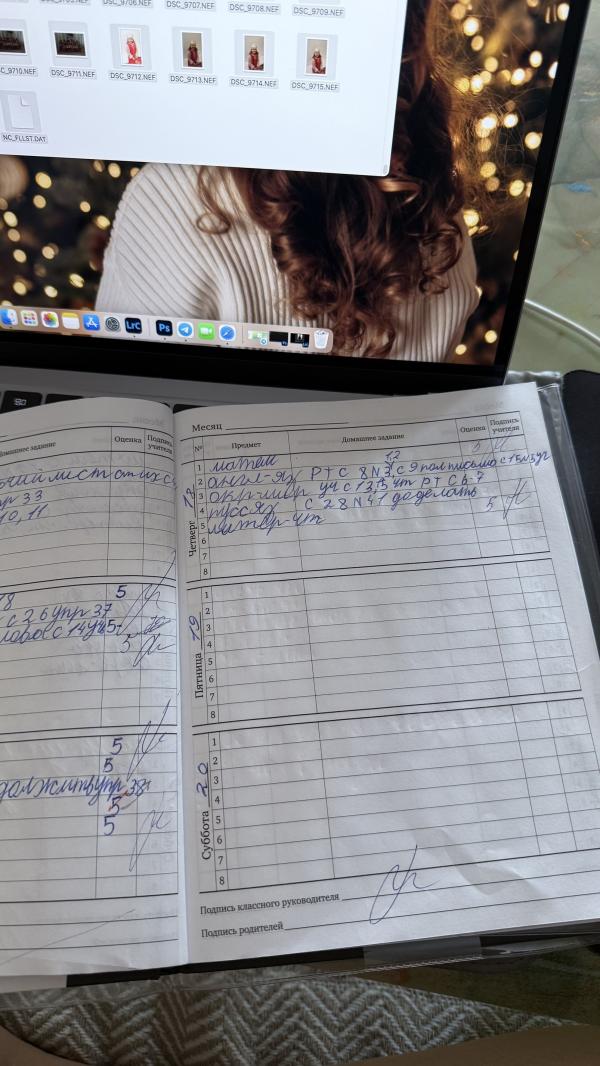 DSC_9706.NEF DSC_9707.NEF DSC_9708.NEF DSC_9709.NEF
C_9710.NEF DSC_9711.NEF DSC_9712.NEF DSC_9713.NEF DSC_9714.NEF DSC_9715.NEF
NC_FLLST.DAT
LrC Ps
омашнее задание Оценка Подпись учителя
чий лист стих с
пр 33
0, 11
18 5
с 26 упр 37
слово с 14 у 5
5
5
5
должить упр 38
5
5
Месяц
№ Предмет Домашнее задание Оценка Подпись учителя
Четверг 18
1 матем 1,2
2 англ-яз РТ С 8 N 3, с 9 пол письмо с 15 N 3 уч
3 окр-мир уч с 13, 15 чт РТ С 6-7
4 русс яз с 28 N 41 доделать 5
5 литер-чт
6
7
8
Пятница 19
1
2
3
4
5
6
7
8
Суббота 20
1
2
3
4
5
6
7
8
Подпись классного руководителя
Подпись родителей